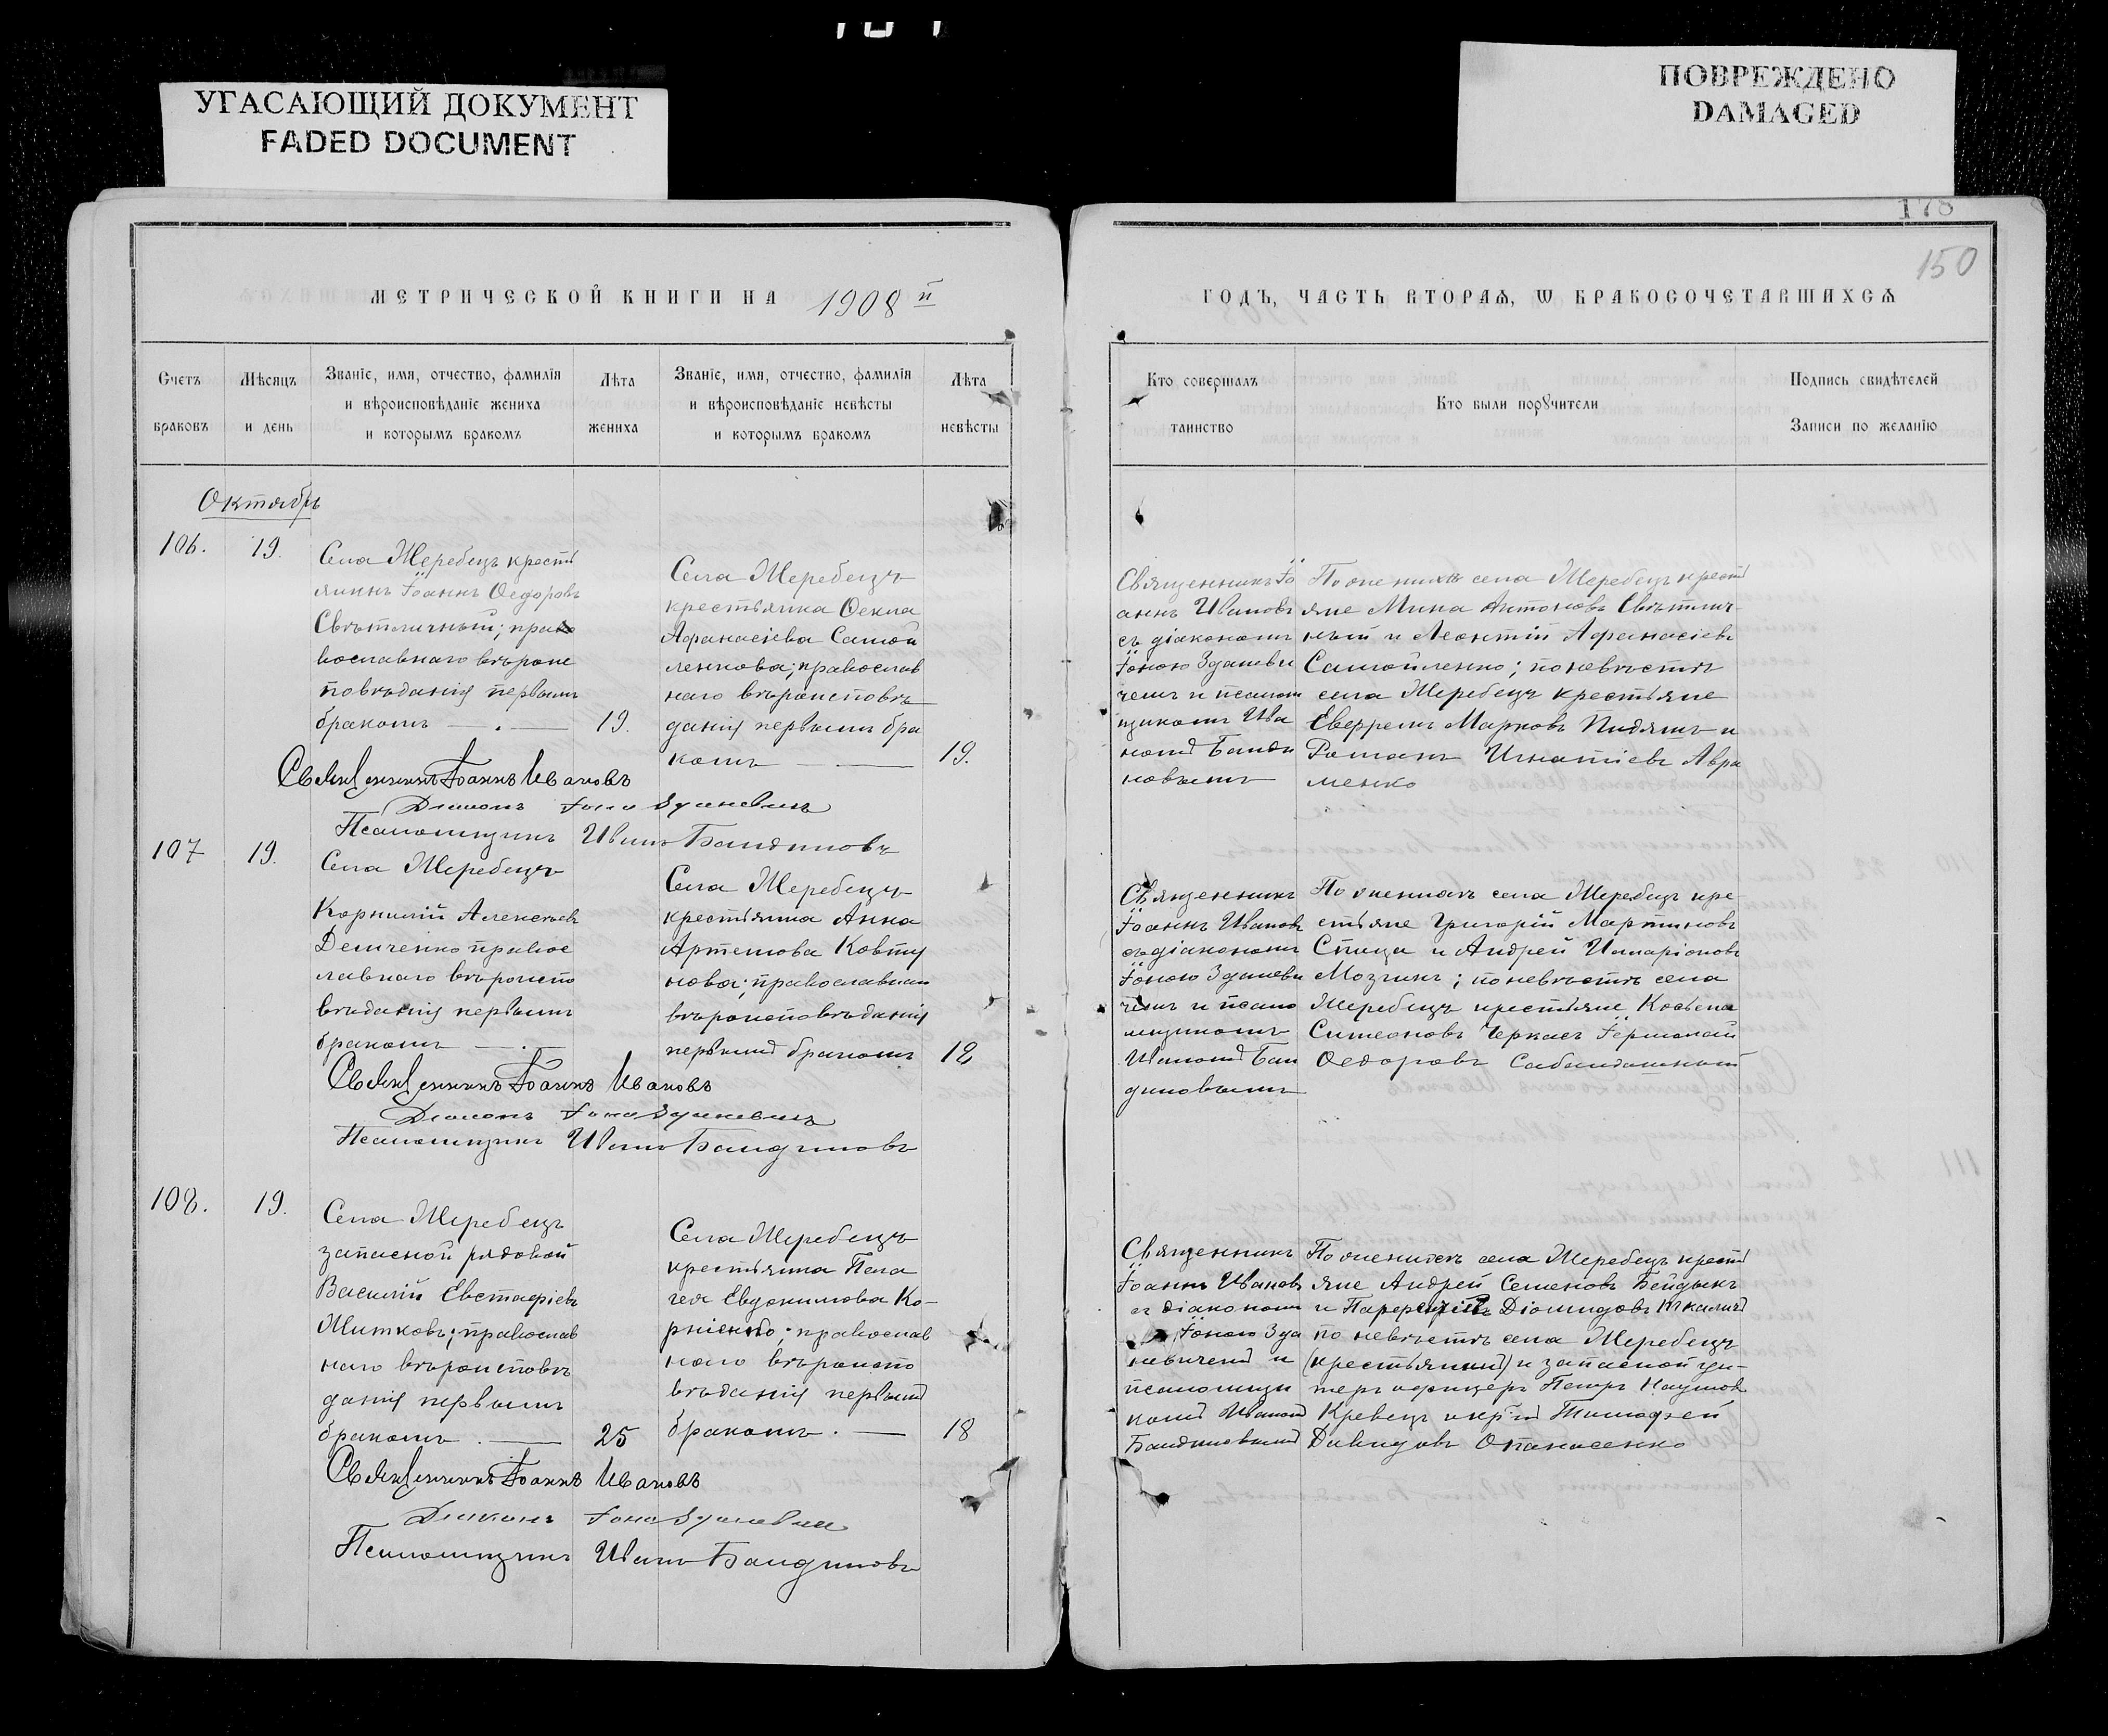 УГАСАЮЩИЙ ДОКУМЕНТ
FADED DOCUMENT
ПОВРЕЖДЕНО
DAMAGED
178
150
МЕТРИЧЕСКОЙ КНИГИ НА 1908 й
ГОДЪ, ЧАСТЬ ВТОРАЯ, Ѡ БРАКОСОЧЕТАВШИХСЯ
Счетъ
браковъ
Мѣсяцъ
и день
Званіе, имя, отчество, фамилія
и вѣроисповѣданіе жениха
и которымъ бракомъ
Лѣта
жениха
Званіе, имя, отчество, фамилія
и вѣроисповѣданіе невѣсты
и которымъ бракомъ
Лѣта
невѣсты
Кто совершалъ
таинство
Кто были порꙋчители
Подпись свидѣтелей
Записи по желанію
Октябрь
106.
19.
Села Жеребецъ крестъ
янинъ Іоаннъ Ѳедоровъ
Свѣтличный; право
вославнаго вѣроис
повѣданія первымъ
бракомъ
19.
Села Жеребецъ
крестьянка Ѳекла
Афанасіева Самой
ленкова; православ
наго вѣроисповѣ
данія первымъ бра
комъ
19.
Священникъ Іо
аннъ Ивановъ
съ діакономъ
Іоною Зданеви
чемъ и псалом
щикомъ Ива
номъ Банди
новымъ
По женихѣ села Жеребецъ крестъ
яне Мина Антоновъ Свѣтлич-
ный и Леонтій Афанасіевъ
Самойленко; по невѣстѣ
села Жеребецъ крестьяне
Евфремъ Марковъ Пидяшъ и
Романъ Игнатіевъ Авра
менко
Священникъ Іоаннъ Ивановъ
Діаконъ Іона Зданевичъ
Псаломщикъ Иванъ Бандиновъ
107
19.
Села Жеребецъ
Корнилій Алексѣевъ
Демченко правос
лавнаго вѣроиспо
вѣданія первымъ
бракомъ
Села Жеребецъ
крестьянка Анна
Артемова Ковту
нова; православнаго
вѣроисповѣданія
первымъ бракомъ
18
Священникъ
Іоаннъ Ивановъ
съ діакономъ
Іоною Зданеви
чемъ и псало
мщикомъ
Иваномъ Бан
диновымъ
По женихѣ села Жеребецъ кре-
стьяне Григорій Мартиновъ
Спица и Андрей Иларіоновъ
Мозгинъ; по невѣстѣ села
Жеребецъ крестьяне
Симеоновъ Черкасъ
Ѳедоровъ
Священникъ Іоаннъ Ивановъ
Діаконъ Іона Зданевичъ
Псаломщикъ Иванъ Бандиновъ
108.
19.
Села Жеребецъ
запасной рядовой
Василій Евстафіевъ
Житковъ; православ
наго вѣроисповѣ
данія первымъ
бракомъ.
25
Села Жеребецъ
крестьянка Пела
гея Евдокимова Ко-
рніенко; православ
наго вѣроиспо
вѣданія первымъ
бракомъ.
18
Священникъ
Іоаннъ Ивановъ
съ діакономъ
Іоною Зда
невичемъ и
псаломщи
комъ Иваномъ
Бандиновымъ
По женихѣ села Жеребецъ крестъ
яне Андрей Семеновъ Бейдыкъ
и Діомидовъ
по невѣстѣ села Жеребецъ
и запасной ун-
теръ офицеръ Петръ Наумов
Кревецъ и Тимофей
Давидовъ Опанасенко
Священникъ Іоаннъ Ивановъ
Діаконъ Іона Зданевичъ
Псаломщикъ Иванъ Бандиновъ